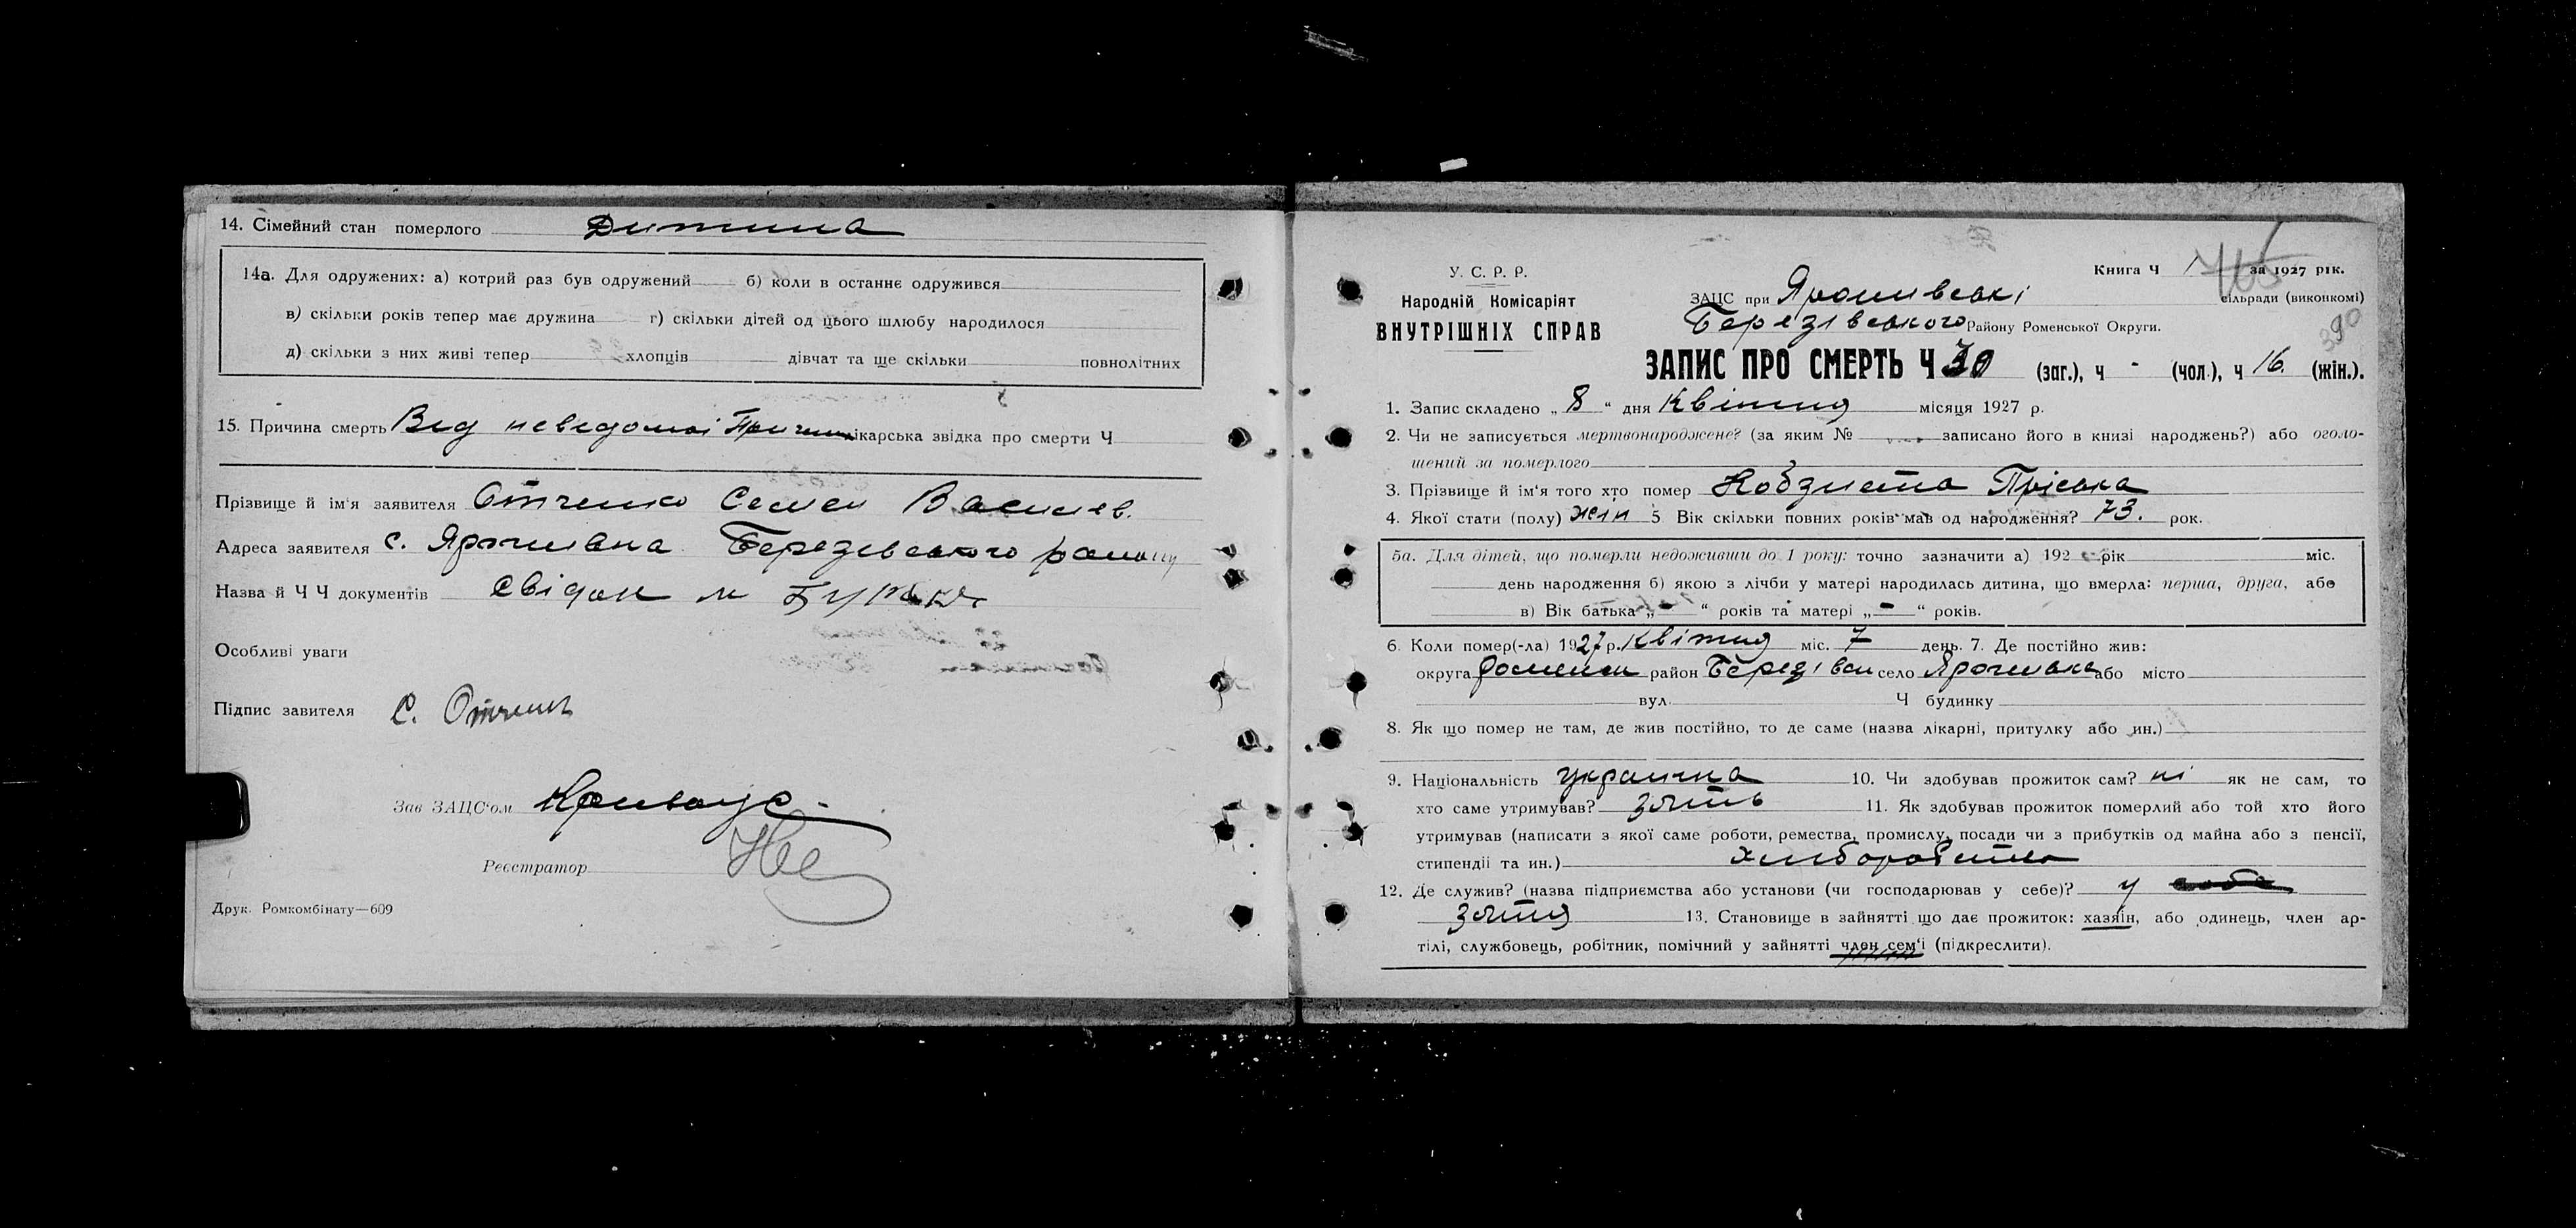 14. Сімейний стан померлого Дитина
14а. Для одружених: а) котрий раз був одружений б) коли в останнє одружився
в) скільки років тепер має дружина г) скільки дітей од цього шлюбу народилося
д) скільки з них живі тепер хлопців дівчат та ще скільки повнолітних
15. Причина смерть Вид неведомоі Причини лікарська звідка про смерти Ч
Прізвище й ім'я заявителя Отченко Семен Васильев.
Адреса заявителя с. Ярошивка Березівського району
Назва й Ч Ч документів Свідок
Особливі уваги
Підпис завителя С. Отченко
Зав ЗАЦС'ом
Реєстратор
Друк. Ромкомбінату—609
У. С. Р. Р.
Народній Комісаріят
ВНУТРІШНІХ СПРАВ
Книга Ч 1 за 1927 рік.
765
390
ЗАЦС при Ярошивські сільради (виконкомі)
Березівського Району Роменської Округи.
ЗАПИС ПРО СМЕРТЬ Ч 30 (заг.), ч - (чол.), ч 16. (жін.).
1. Запис складено „ 8 “ дня Квітня місяця 1927 р.
2. Чи не записується мертвонароджене? (за яким № записано його в книзі народжень?) або оголо-
шений за померлого
3. Прізвище й ім'я того хто помер Кобзиста Пріська
4. Якої стати (полу) жін 5 Вік скільки повних років мав од народження? 73. рок.
5а. Для дітей, що померли недоживши до 1 року: точно зазначити а) 192 рік міс.
день народження б) якою з лічби у матері народилась дитина, що вмерла: перша, друга, або
в) Вік батька „ - “ років та матері „ - “ років.
6. Коли помер(-ла) 1927 р. Квітня міс. 7 день. 7. Де постійно жив:
округа Роменськ район Березівськ село Ярошивка або місто
вул. Ч будинку
8. Як що помер не там, де жив постійно, то де саме (назва лікарні, притулку або ин.)
9. Національність украинка 10. Чи здобував прожиток сам? ні як не сам, то
хто саме утримував? зять 11. Як здобував прожиток померлий або той хто його
утримував (написати з якої саме роботи, ремества, промислу, посади чи з прибутків од майна або з пенсії,
стипендії та ин.) хлиборобство
12. Де служив? (назва підприємства або установи (чи господарював у себе)? у
зятя 13. Становище в зайнятті що дає прожиток: хазяїн, або одинець, член ар-
тілі, службовець, робітник, помічний у зайнятті член сем'ї (підкреслити).